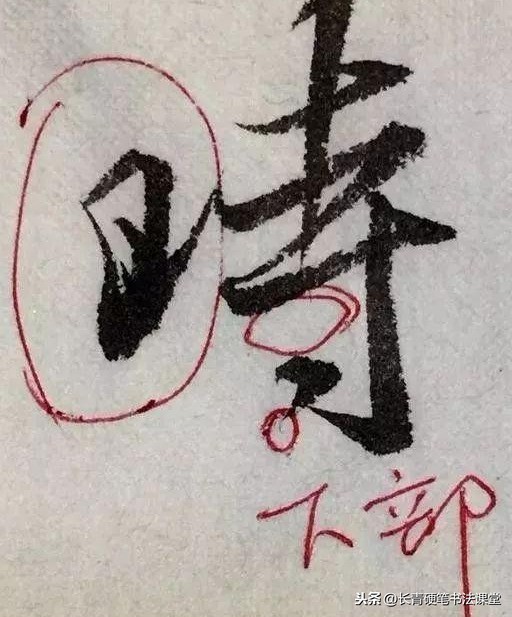 時
下部
头条 @长青硬笔书法课堂